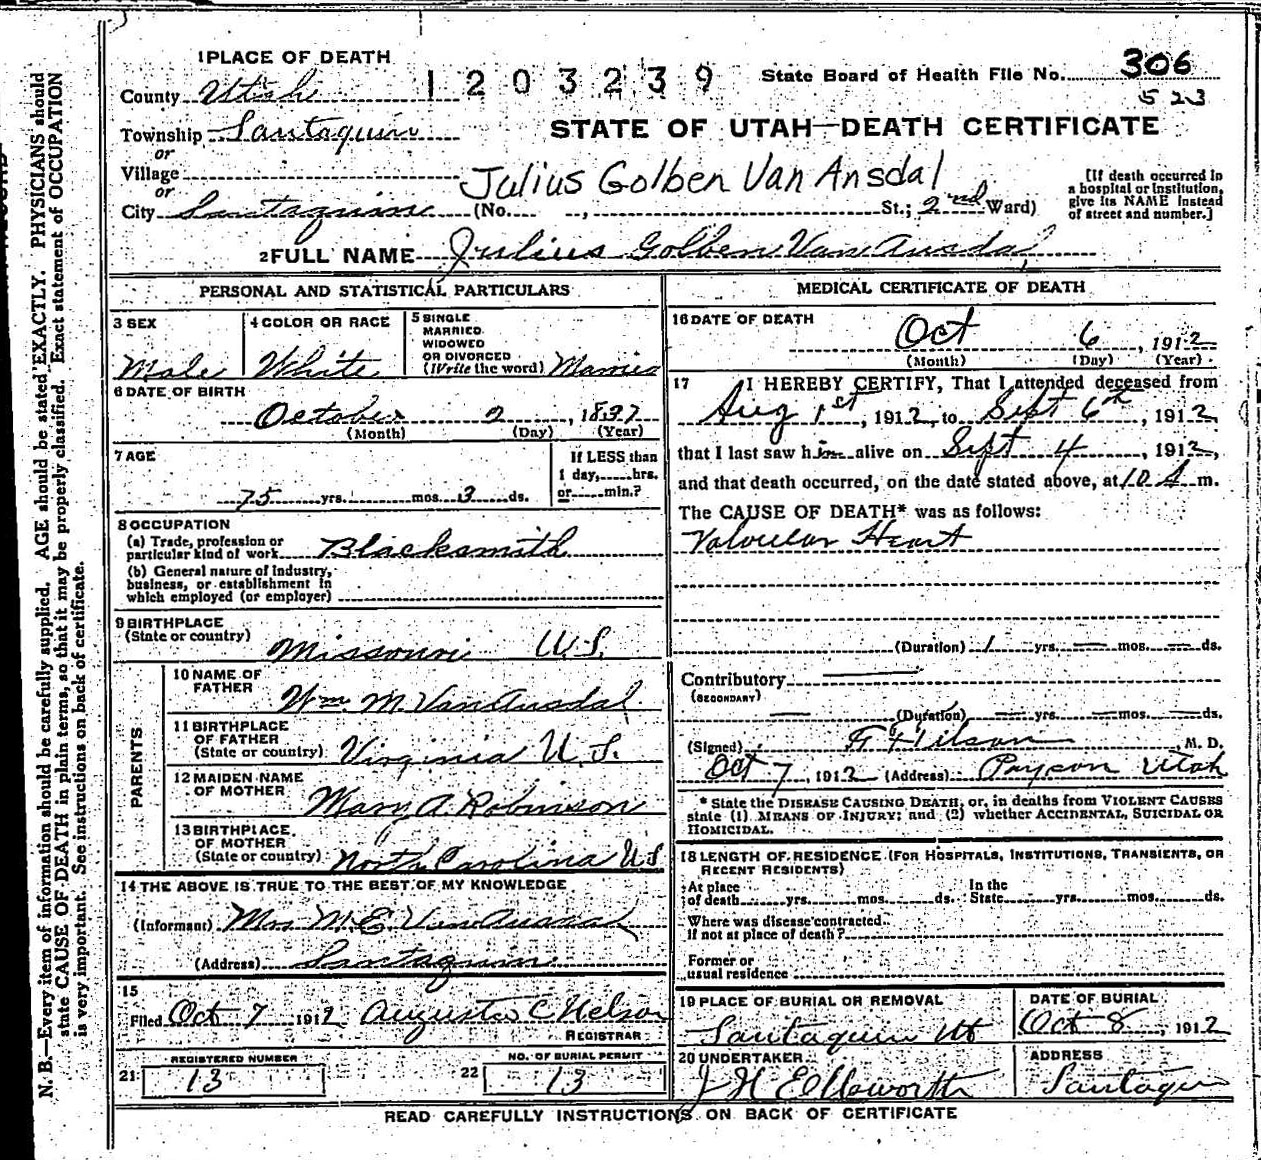 1 PLACE OF DEATH
County Utah
1203239
State Board of Health File No. 306
523
Township Santaquin
or
Village
or
City Santaquin (No. , St.; 2nd Ward)
STATE OF UTAH—DEATH CERTIFICATE
Julius Golben Van Ansdal
[If death occurred in
a hospital or institution,
give its NAME instead
of street and number.]
2 FULL NAME Julius Golben Van Ausdal
PERSONAL AND STATISTICAL PARTICULARS
3 SEX
Male
4 COLOR OR RACE
White
5 SINGLE
MARRIED
WIDOWED
OR DIVORCED
(Write the word) Married
6 DATE OF BIRTH
October 2, 1837
(Month) (Day) (Year)
7 AGE
75 yrs. mos. 3 ds.
If LESS than
1 day, hrs.
or min.?
8 OCCUPATION
(a) Trade, profession or
particular kind of work Blacksmith
(b) General nature of industry,
business, or establishment in
which employed (or employer)
9 BIRTHPLACE
(State or country)
Missouri U.S.
PARENTS
10 NAME OF
FATHER
Wm. M. Van Ausdal
11 BIRTHPLACE
OF FATHER
(State or country) Virginia U.S.
12 MAIDEN NAME
OF MOTHER
Mary A. Robinson
13 BIRTHPLACE
OF MOTHER
(State or country) North Carolina U.S
14 THE ABOVE IS TRUE TO THE BEST OF MY KNOWLEDGE
(Informant) Mrs M.E. Van Ausdal
(Address) Santaquin
15
Filed Oct 7 1912 August C Nelson
REGISTRAR
REGISTERED NUMBER
21 13
NO. OF BURIAL PERMIT
22 13
MEDICAL CERTIFICATE OF DEATH
16 DATE OF DEATH
Oct 6, 1912
(Month) (Day) (Year)
17 I HEREBY CERTIFY, That I attended deceased from
Aug 1st, 1912, to Sept 6th, 1912
that I last saw him alive on Sept 4, 1912,
and that death occurred, on the date stated above, at 10 A m.
The CAUSE OF DEATH* was as follows:
Valvular Heart
(Duration) 1 yrs. — mos. — ds.
Contributory —
(SECONDARY)
— (Duration) — yrs. — mos. — ds.
(Signed) M. D.
Oct 7, 1912 (Address) Payson Utah
* State the DISEASE CAUSING DEATH, or, in deaths from VIOLENT CAUSES
state (1) MEANS OF INJURY; and (2) whether ACCIDENTAL, SUICIDAL OR
HOMICIDAL.
18 LENGTH OF RESIDENCE (FOR HOSPITALS, INSTITUTIONS, TRANSIENTS, OR
RECENT RESIDENTS)
At place
of death yrs. mos. ds.
In the
State yrs. mos. ds.
Where was disease contracted
if not at place of death?
Former or
usual residence
19 PLACE OF BURIAL OR REMOVAL
Santaquin Ut
DATE OF BURIAL
Oct 8, 1912
20 UNDERTAKER
J H Ellsworth
ADDRESS
Santaqu
READ CAREFULLY INSTRUCTIONS ON BACK OF CERTIFICATE
N. B.—Every item of information should be carefully supplied. AGE should be stated EXACTLY. PHYSICIANS should
state CAUSE OF DEATH in plain terms, so that it may be properly classified. Exact statement of OCCUPATION
is very important. See instructions on back of certificate.